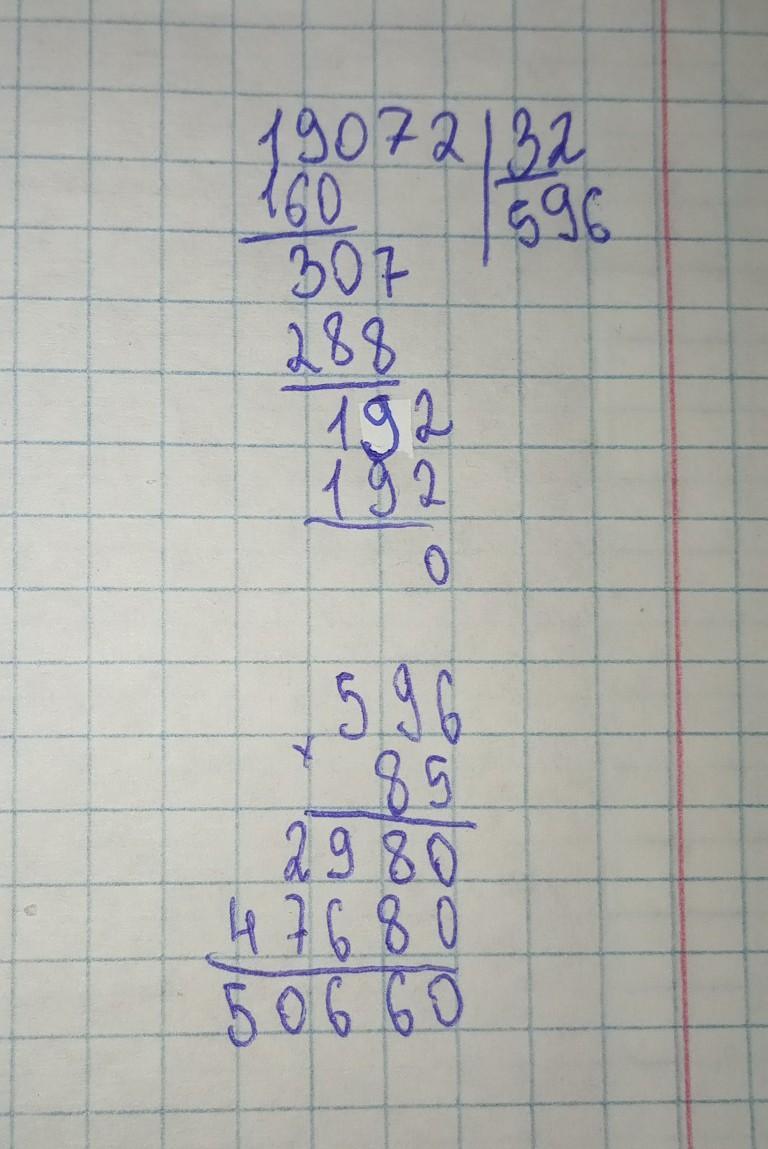 19072 | 32
160 596
307
288
192
192
0
596
× 85
2980
47680
50660